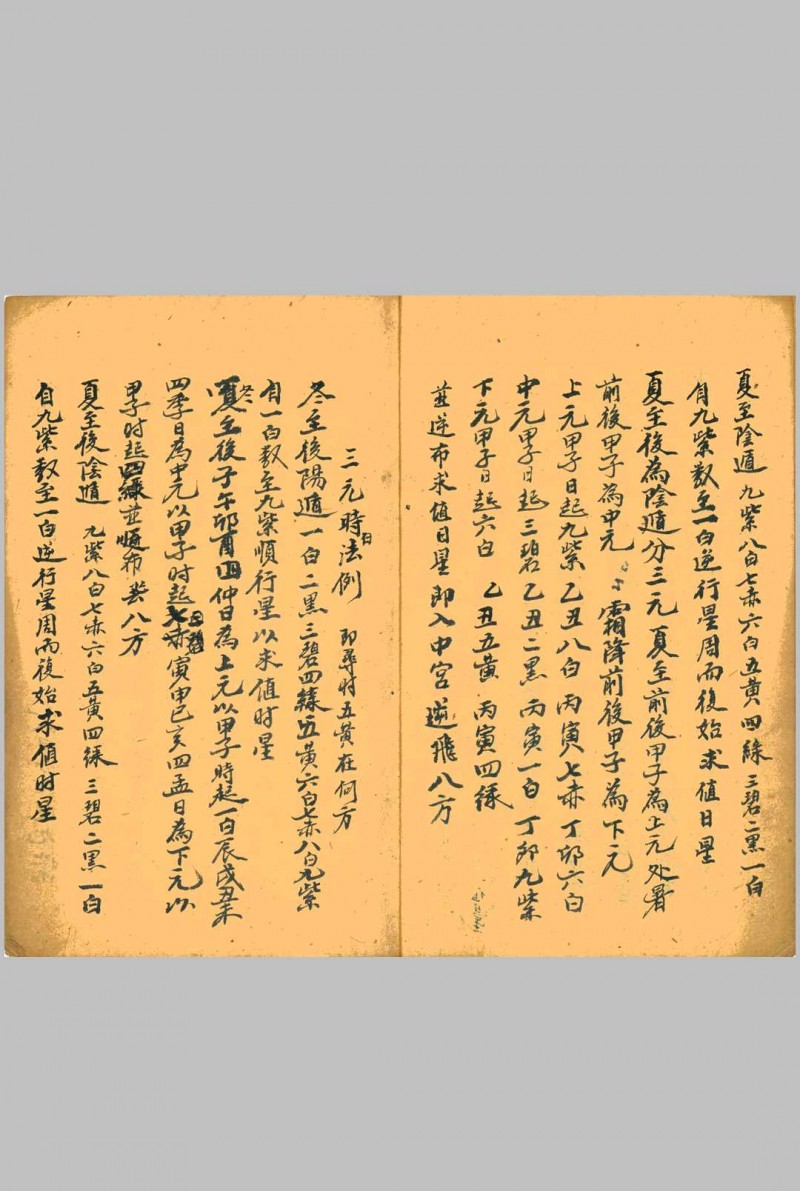 夏至陰遁 九紫八白七赤六白五黃四綠三碧二黑一白
自九紫数至一白逆行星周而復始求值日星
夏至後為陰遁分三元 夏至前後甲子為上元处暑
前後甲子為中元 霜降前後甲子為下元
上元甲子日起九紫 乙丑八白 丙寅七赤 丁卯六白
中元甲子日起三碧 乙丑二黑 丙寅一白 丁卯九紫
下元甲子日起六白 乙丑五黃 丙寅四綠
並逆布求值日星即入中宮逆飛八方
三元時日法例 即尋时五黃在何方
冬至後陽遁一白二黑三碧四綠五黃六白七赤八白九紫
自一白数至九紫順行星以求值时星
冬至後子午卯酉四仲日為上元以甲子時起一白辰戌丑未
四季日為中元以甲子时起七赤寅申巳亥四孟日為下元以
甲子时起四綠並順布于八方
夏至後陰遁 九紫八白七赤六白五黃四綠三碧二黑一白
自九紫数至一白逆行星周而復始求值时星